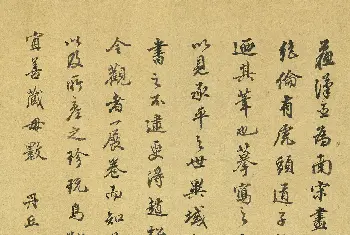 蘇漢臣為南宋畫
絕倫有虎頭道子
迺其筆也摹寫之
以見承平之世異域
書之不逮更得趙
令觀者一展卷而知
以及所產之珍玩鳥
宜善藏毋斁 丹丘